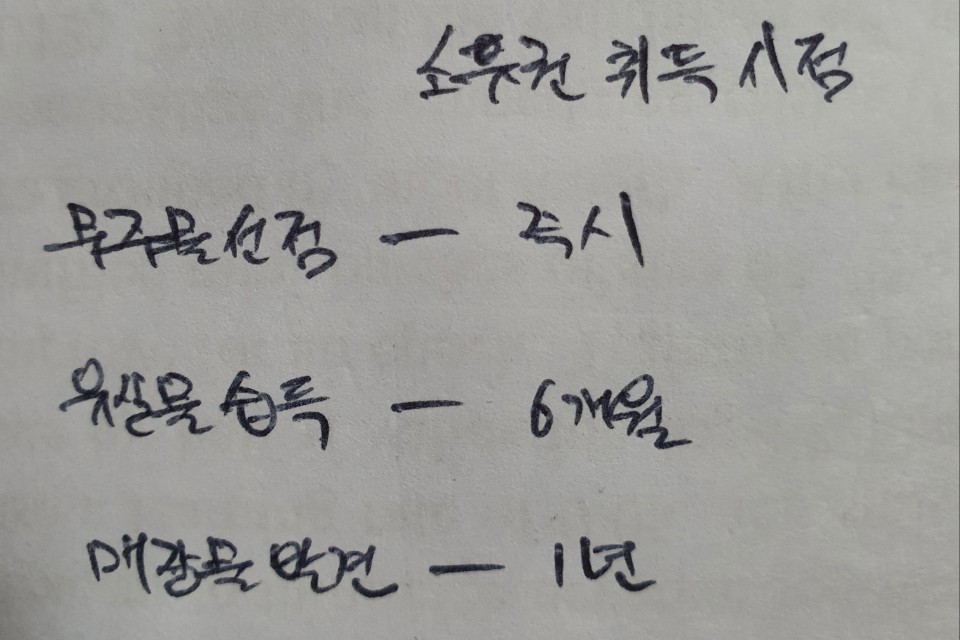 소유권 취득 시점
무주물 선점 — 즉시
유실물 습득 — 6개월
매장물 발견 — 1년